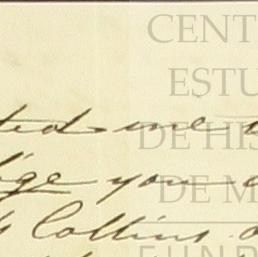 CENT
ESTU
DE HIS
DE M
FUND
ted me
lige you
Collins.